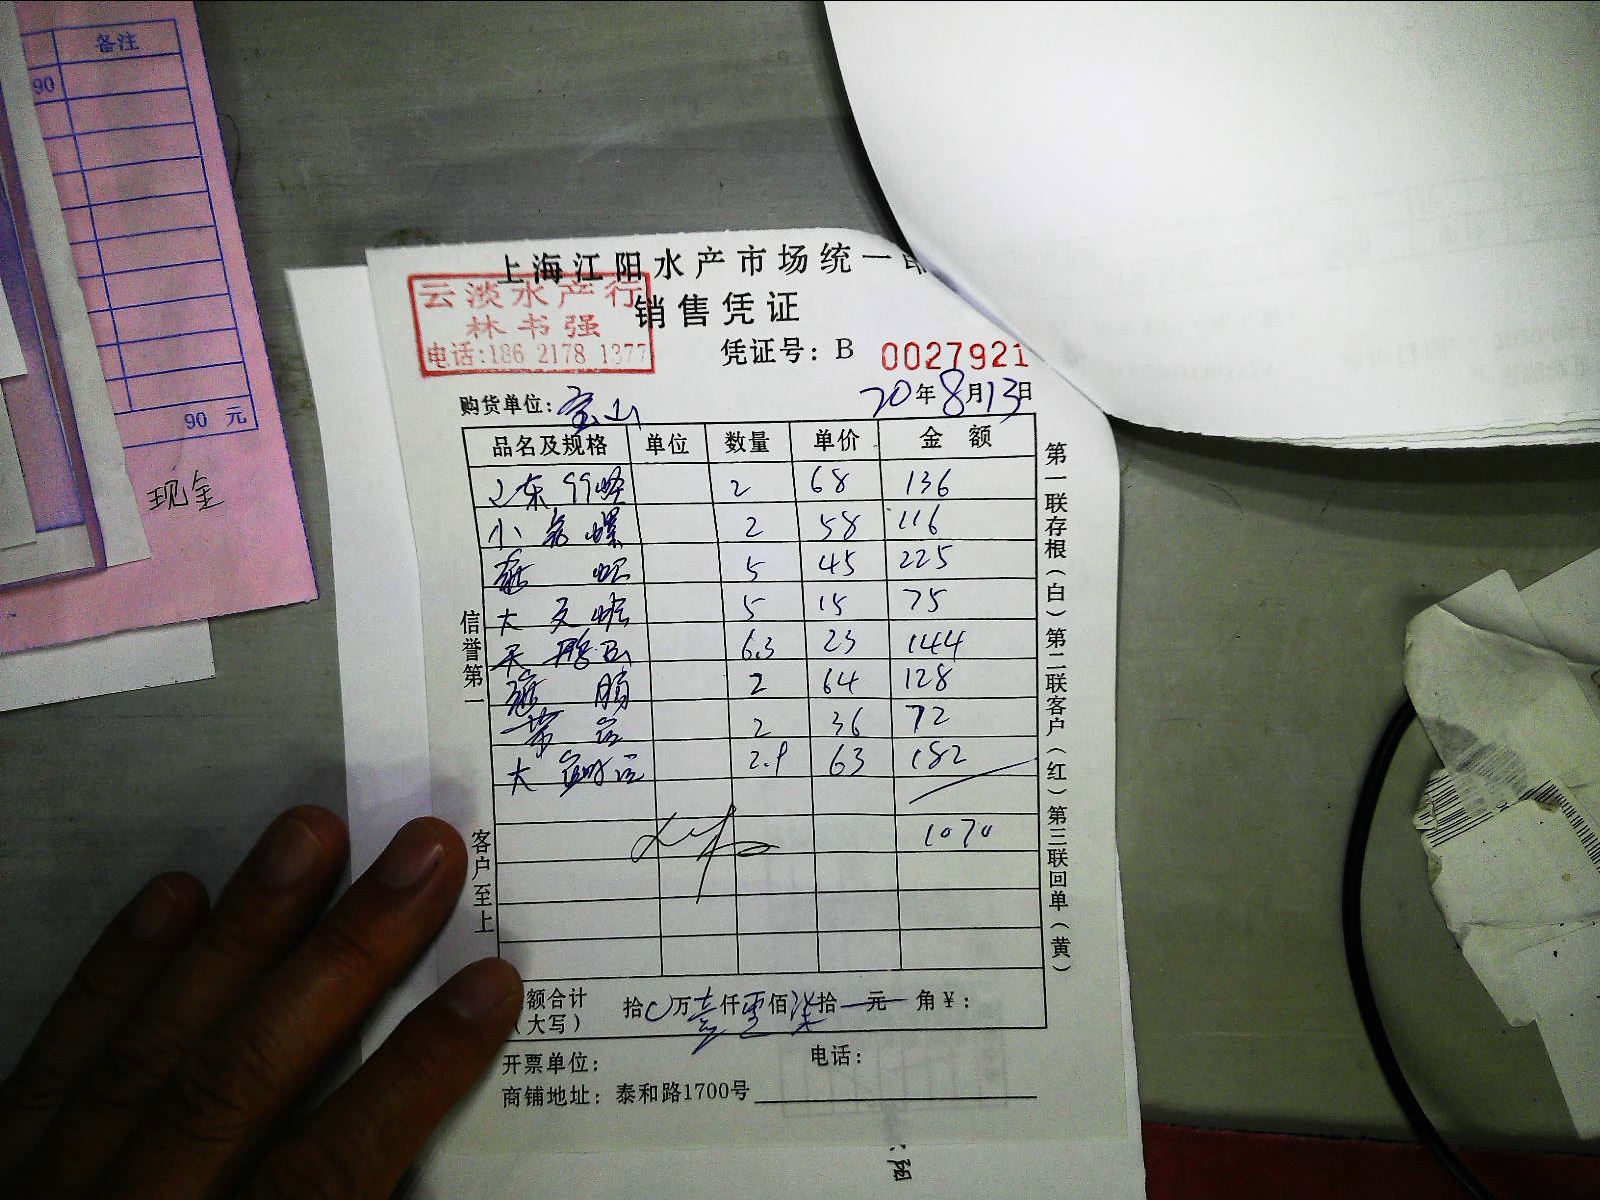 备注
90
90 元
现金
上海江阳水产市场统一
销售凭证
云淡水产行
林书强
电话:186 2178 1377
凭证号: B 0027921
购货单位: 宝山 20年8月13日
品名及规格 单位 数量 单价 金额
2 68 136
小 螺 2 58 116
5 45 225
大 5 15 75
6.3 23 144
2 64 128
2 36 72
大 2.9 63 182
1070
信誉第一
客户至上
第一联存根(白) 第二联客户(红) 第三联回单(黄)
额合计 拾0万壹仟零佰柒拾元 角¥:
(大写)
开票单位: 电话:
商铺地址: 泰和路1700号